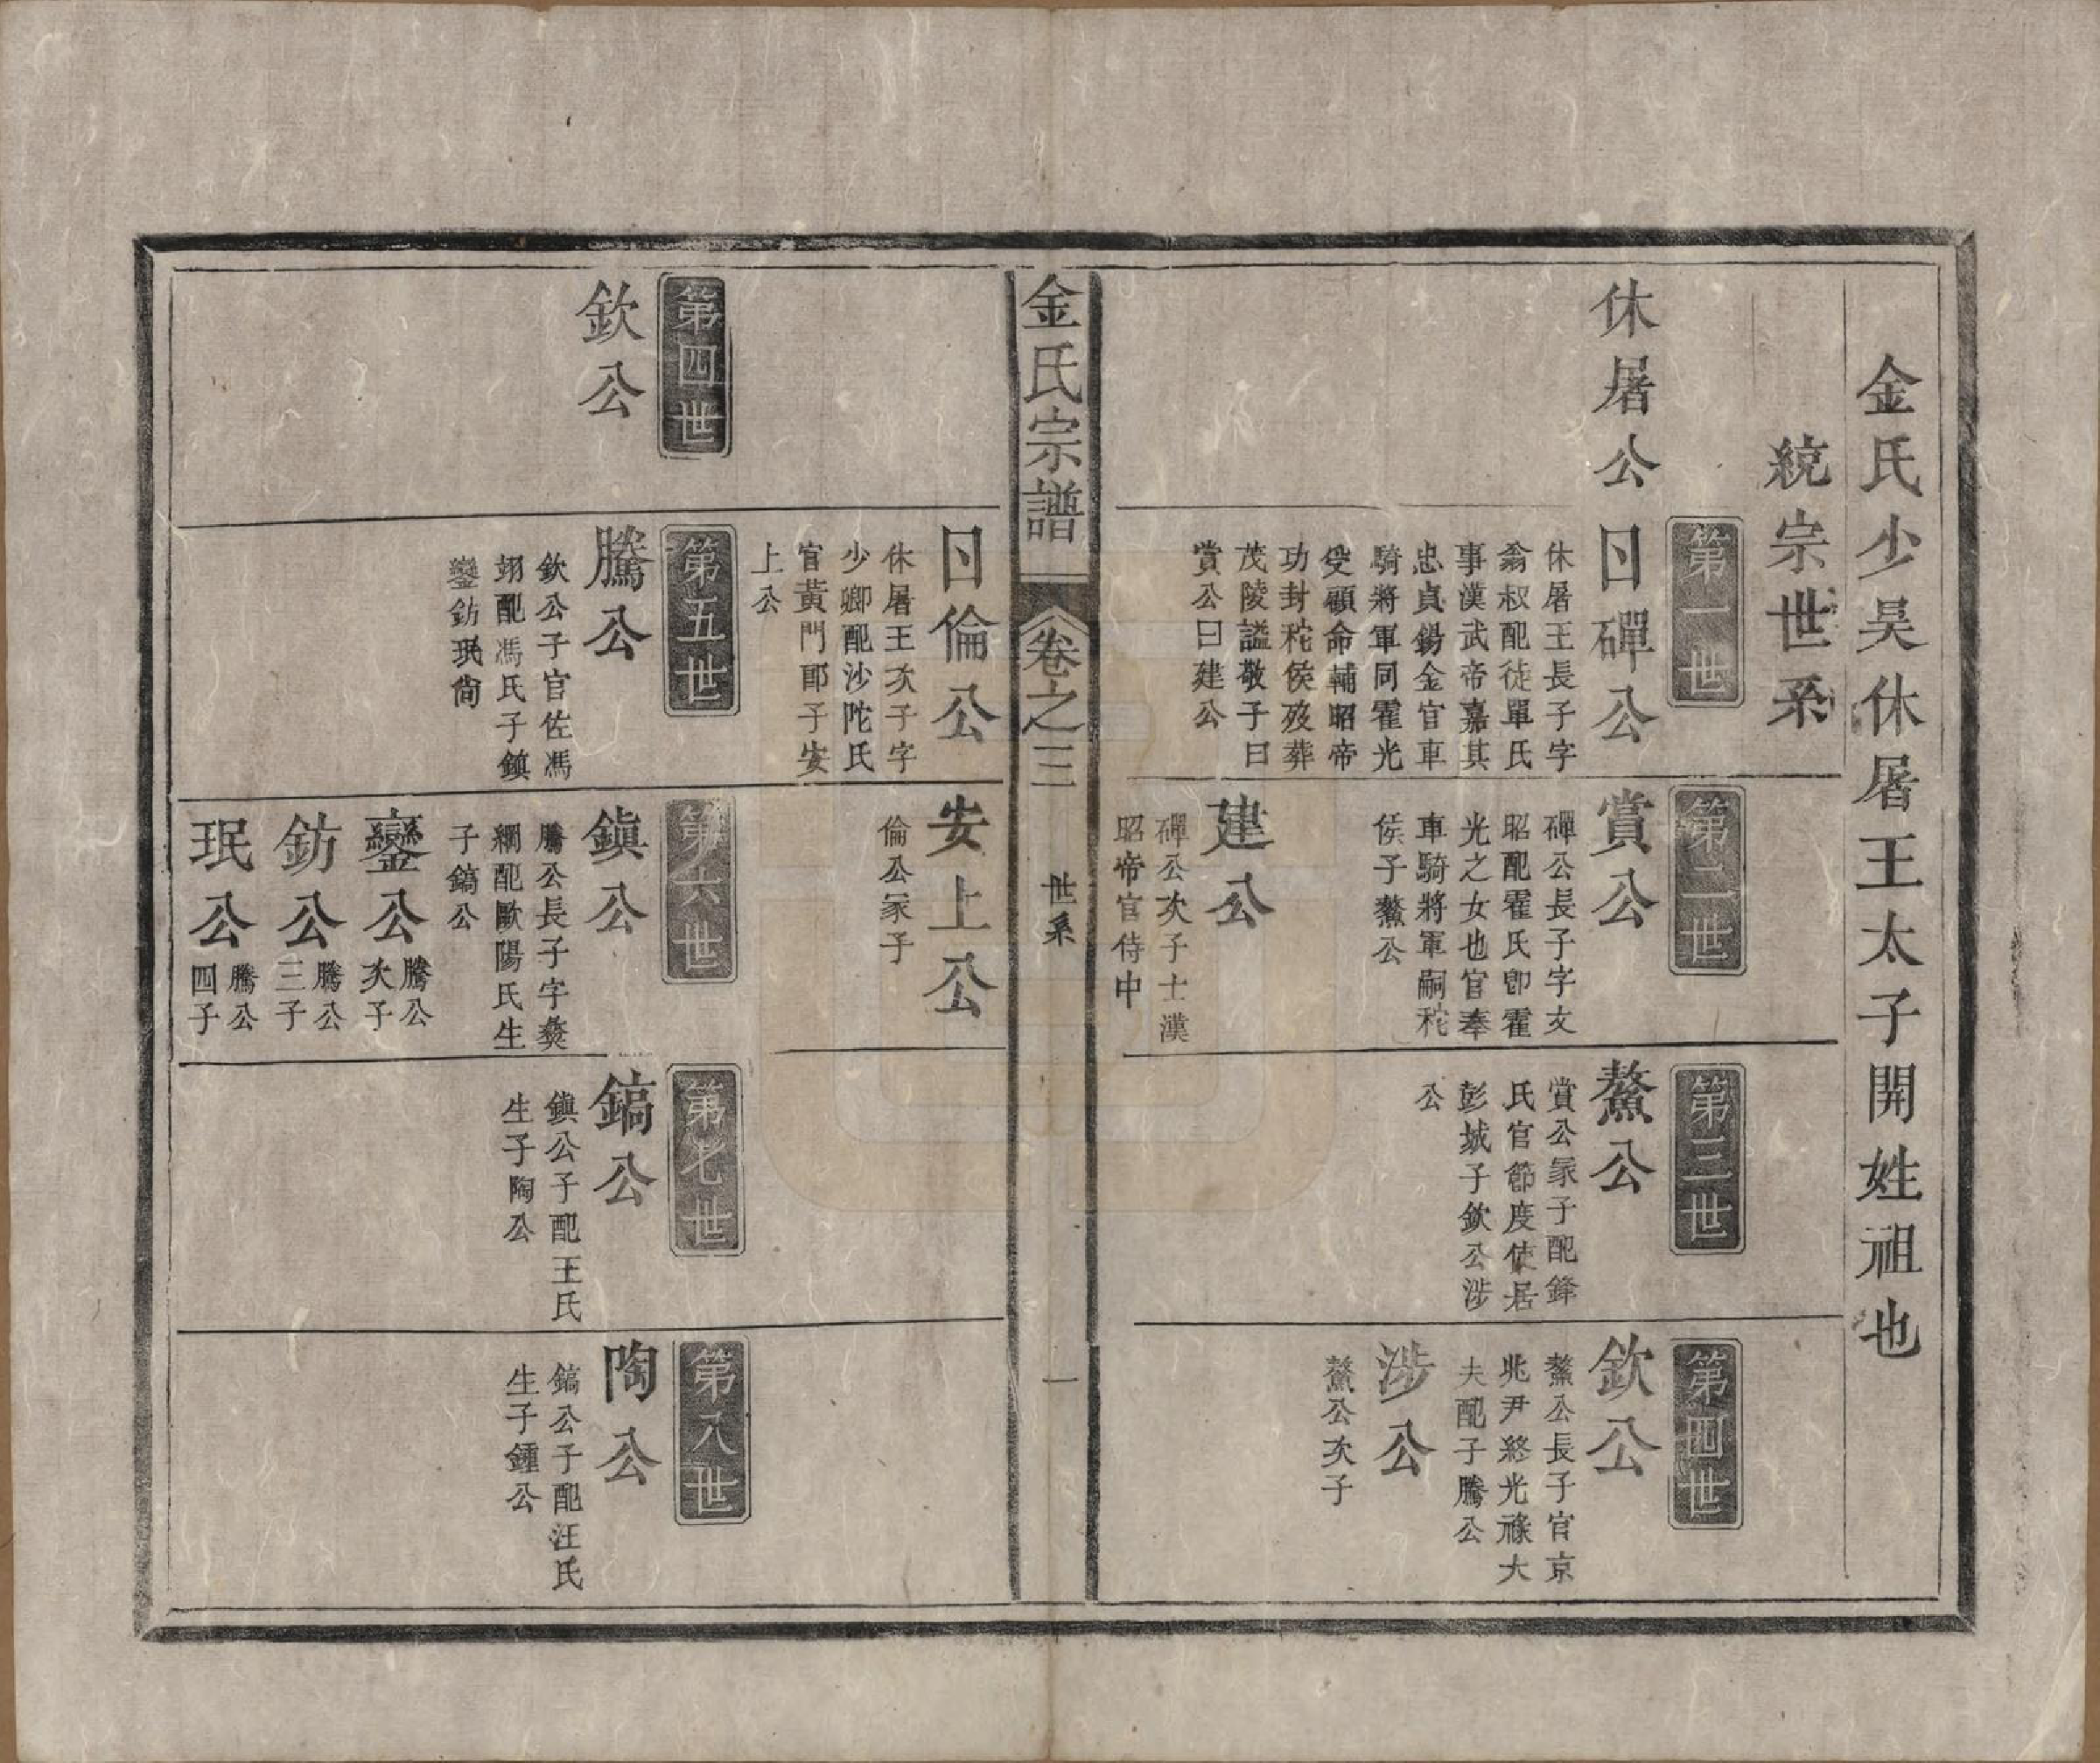 金氏少昊休屠王太子開姓祖也
統宗世系
休屠公
第一世
日磾公
休屠王長子字
翁叔配徒單氏
事漢武帝嘉其
忠貞錫金官車
騎將軍同霍光
受顧命輔昭帝
功封秺侯歿葬
茂陵謚敬子曰
賞公曰建公
第二世
賞公
磾公長子字文
昭配霍氏卽霍
光之女也官奉
車騎將軍嗣秺
侯子鰲公
建公
磾公次子士漢
昭帝官侍中
第三世
鰲公
賞公冡子配鋒
氏官節度使居
彭城子欽公涉
公
第四世
欽公
鰲公長子官京
兆尹終光祿大
夫配子騰公
涉公
鰲公次子
金氏宗譜
卷之三
世系
一
日倫公
休屠王次子字
少卿配沙陀氏
官黃門郎子安
上公
安上公
倫公冡子
第四世
欽公
第五世
騰公
欽公子官佐馮
翊配馮氏子鎮
鑾鈁珉尙
第六世
鎮公
騰公長子字彝
綱配歐陽氏生
子鎬公
鑾公
騰公
次子
鈁公
騰公
三子
珉公
騰公
四子
第七世
鎬公
鎮公子配王氏
生子陶公
第八世
陶公
鎬公子配汪氏
生子鍾公